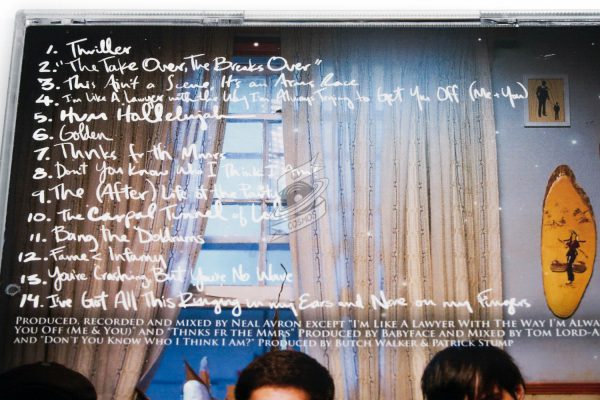 1. Thriller
2. "The Take Over, The Breaks Over"
3. This Ain't a Scene, It's an Arms Race
4. I'm Like A Lawyer with the Way I'm Always Trying to Get You Off (Me + You)
5. Hum Hallelujah
6. Golden
7. Thnks fr th Mmrs
8. Don't You Know Who I Think I Am?
9. The (After) Life of the Party
10. The Carpal Tunnel of Love
11. Bang the Doldrums
12. Fame < Infamy
13. You're Crashing But You're No Wave
14. I've Got All This Ringing in my Ears and None on my Fingers
PRODUCED, RECORDED AND MIXED BY NEAL AVRON EXCEPT "I'M LIKE A LAWYER WITH THE WAY I'M ALWA
YOU OFF (ME & YOU)" AND "THNKS FR THE MMRS" PRODUCED BY BABYFACE AND MIXED BY TOM LORD-A
AND "DON'T YOU KNOW WHO I THINK I AM?" PRODUCED BY BUTCH WALKER & PATRICK STUMP
COSMOS